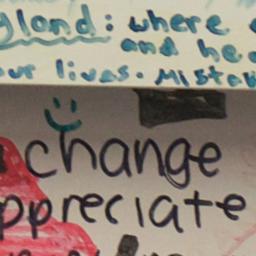 gland: where
and
our lives. Mista
change
ppreciate